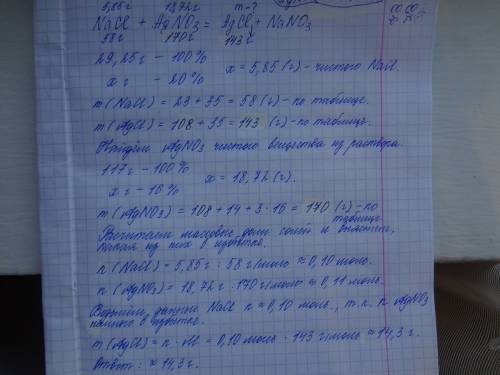 5,85г 18,72г m-?
NaCl + AgNO3 = AgCl + NaNO3
58г 170г 143г
29,25г - 100%
x г - 20% x = 5,85 (г) - чистого NaCl.
m(NaCl) = 23 + 35 = 58 (г) - по таблице.
m(AgCl) = 108 + 35 = 143 (г) - по таблице.
Найдём AgNO3 чистого вещества из раствора.
117г - 100%
x г - 16% x = 18,72 (г).
m(AgNO3) = 108 + 14 + 3 · 16 = 170 (г) - по
таблице
доли солей и
какая из них в избытке.
n(NaCl) = 5,85г : 58 г/моль ≈ 0,10 моль.
n(AgNO3) = 18,72г : 170 г/моль ≈ 0,11 моль.
данные NaCl n ≈ 0,10 моль, т.к. n AgNO3
в избытке.
m(AgCl) = n · M = 0,10 моль · 143 г/моль ≈ 14,3 г.
Ответ: ≈ 14,3 г.